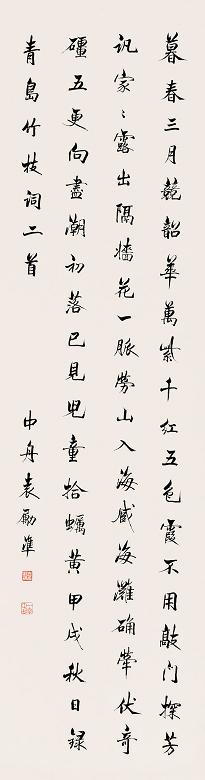 暮春三月競韶華萬紫千紅五色霞不用敲門探芳
訊家〻露出隔墻花一脈勞山入海藏海灘确犖伏奇
礓五更向盡潮初落已見兒童拾蠣黃甲戌秋日録
青島竹枝詞二首
中舟袁勵準